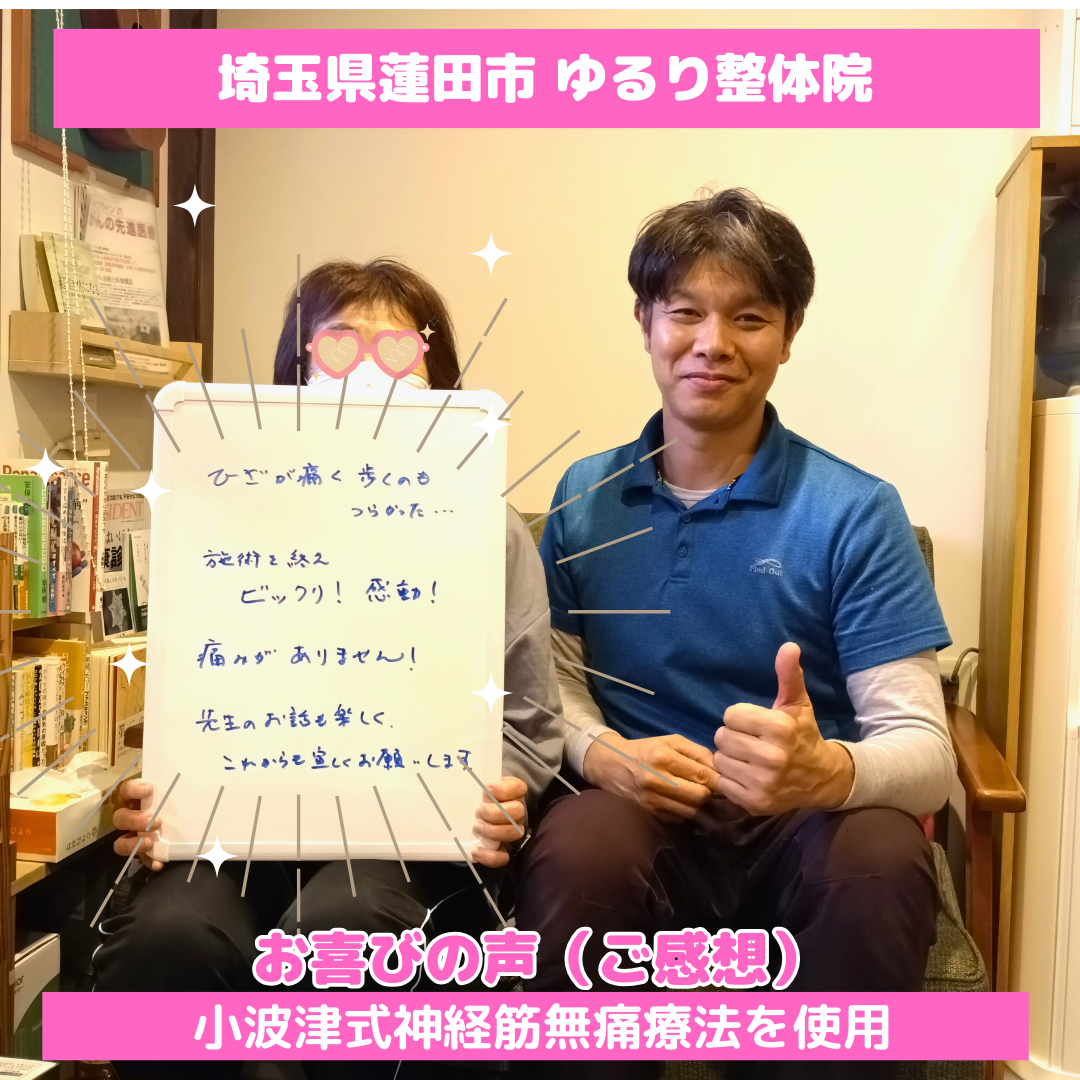 埼玉県蓮田市 ゆるり整体院
がんの先進医療
Renaissance
ひざが痛く 歩くのも
つらかった…
施術を終え
ビックリ! 感動!
痛みが ありません!
先生のお話も楽しく、
これからも宜しくお願いします
Find-Out
はなびより
お喜びの声（ご感想）
小波津式神経筋無痛療法を使用